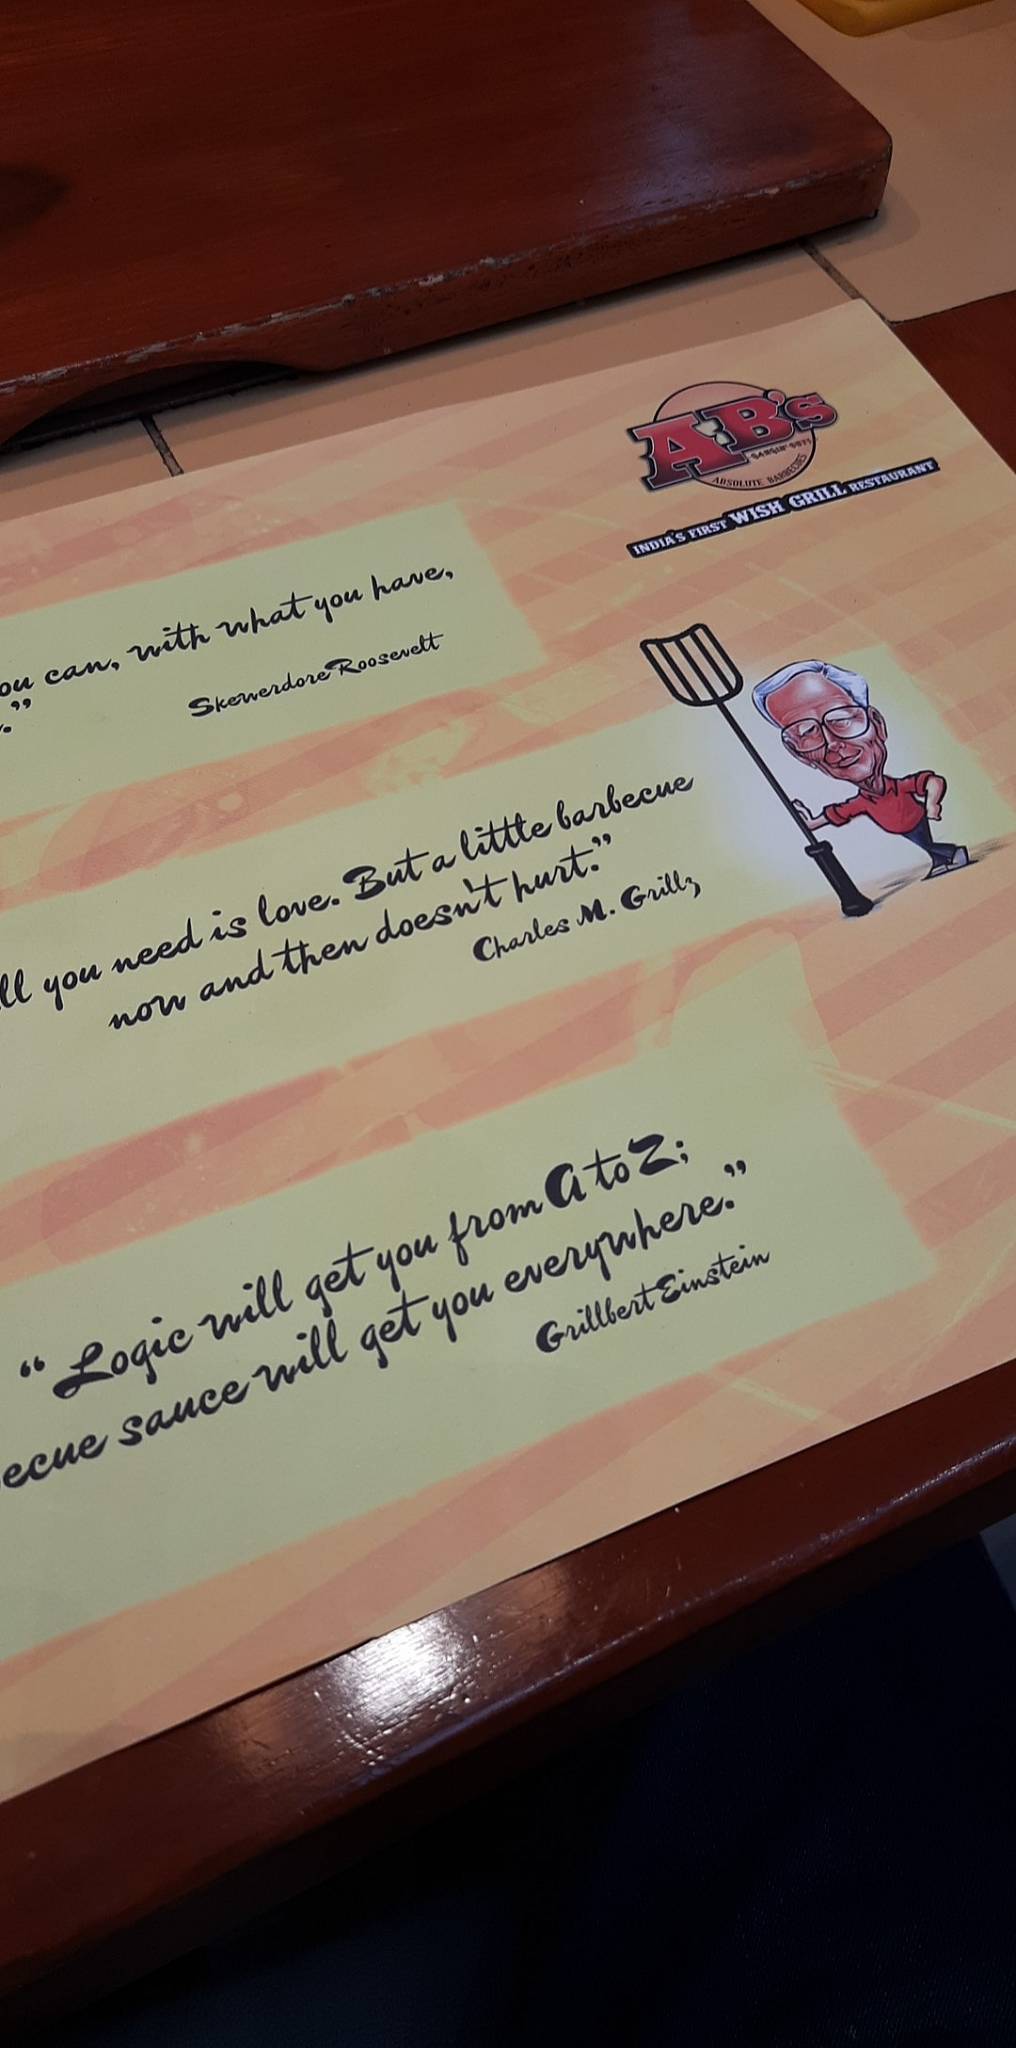 AB's
ABSOLUTE BARBECUES
INDIA'S FIRST WISH GRILL RESTAURANT
can, with what you have,
."
Skewerdore Roosevelt
you need is love. But a little barbecue
now and then doesn't hurt."
Charles M. Grillz
" Logic will get you from A to Z;
sauce will get you everywhere."
Grillbert Einstein